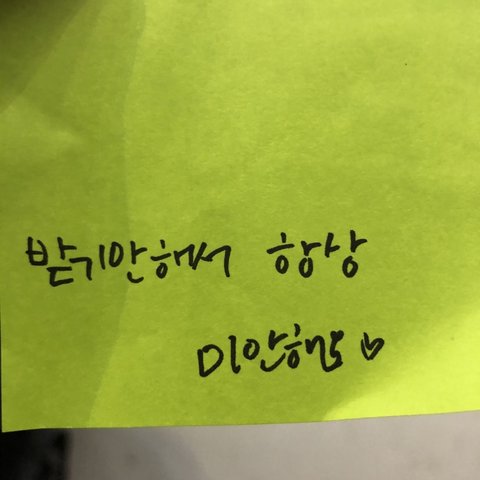 받기만해서 항상
미안해요♡